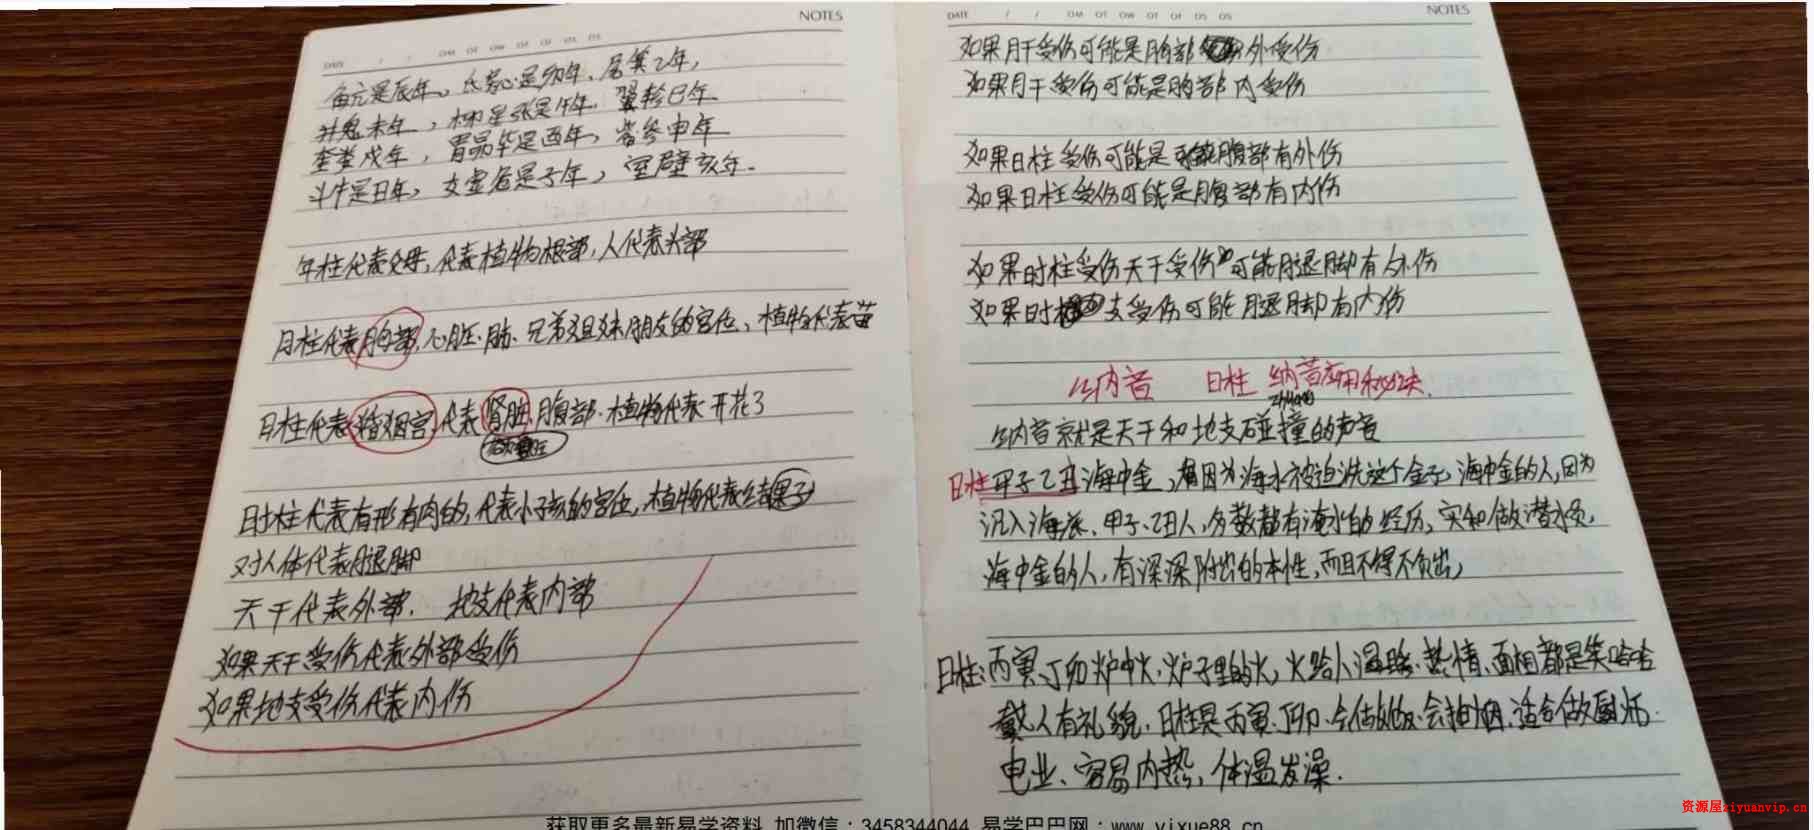 NOTES
DATE / /
角亢是辰年、氐房心是卯年、尾箕乙年,
井鬼未年，柳星张是午年、翼轸巳年
奎娄戌年，胃昴毕是酉年，觜参申年
斗牛是丑年，女虚危是子年，室壁亥年.
年柱代表父母,代表植物根部,人代表头部
月柱代表胸部,心脏、肺、兄弟姐妹朋友的宫位、植物代表苗
日柱代表婚姻宫,代表肾脏、腹部.植物代表开花了
时柱代表有形有肉的,代表小孩的宫位,植物代表结果子
对人体代表腿脚
天干代表外部. 地支代表内部
如果天干受伤代表外部受伤
如果地支受伤代表内伤
NOTES
DATE / /
如果月干受伤可能是胸部外受伤
如果月干受伤可能是胸部内受伤
如果日柱受伤可能是腹部有外伤
如果日柱受伤可能是腹部有内伤
如果时柱受伤天干受伤可能腿脚有外伤
如果时支受伤可能腿脚有内伤
纳音 日柱 纳音应用秘诀.
zhuang
纳音就是天干和地支碰撞的声音
日柱甲子乙丑海中金,因为海水被迫洗这个金子,海中金的人,因为
沉入海底、甲子、乙丑人,多数都有淹水的经历,实和做潜水员,
海中金的人,有深深的本性,而且不得不负出,
日柱:丙寅、丁卯炉中火,炉子里的火,火给人温暖、热情、面相都是笑哈哈
人有礼貌、日柱是丙寅、丁卯、会做饭、会抽烟、适合做厨师.
电业、容易内热,体温发燥.
获取更多最新易学资料 加微信：3458344044 易学巴巴网：www.yixue88.cn
资源屋xiyuanvip.cn